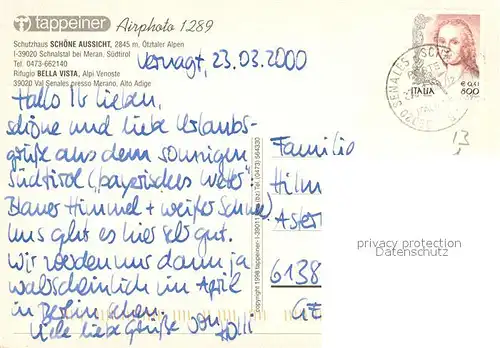 tappeiner Airphoto 1289
Schutzhaus SCHÖNE AUSSICHT, 2845 m, Ötztaler Alpen
I-39020 Schnalstal bei Meran, Südtirol
Tel. 0473-662140
Rifugio BELLA VISTA, Alpi Venoste
39020 Val Senales presso Merano, Alto Adige
Vernagt, 23.03.2000
Hallo Ihr Lieben,
schöne und liebe Urlaubs-
grüße aus dem sonnigen
Südtirol (bayerisches Wetter:
Blauer Himmel + weißer Schnee)
Uns geht es hier sehr gut.
Wir werden uns dann ja
wahrscheinlich im April
in Berlin sehen.
Viele liebe Grüße von
copyright 1998 tappeiner I-39011 (bz) Tel. (0473) 564330
€ 0,41
ITALIA 800
SENALES
39020
13
Familie
Hilm
Aster
6138
privacy protection
VALUE